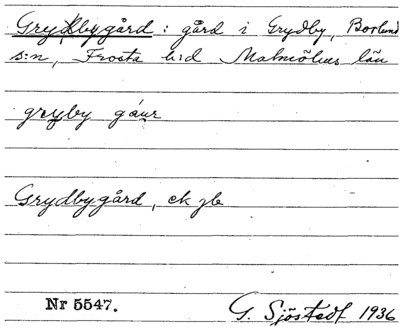 Grydbygård : gård i Grydby, Borlunda
s:n, Frosta h:d Malmöhus län
gryby gáur
Grydbygård, ek jb
Nr 5547.
G. Sjöstedt 1936